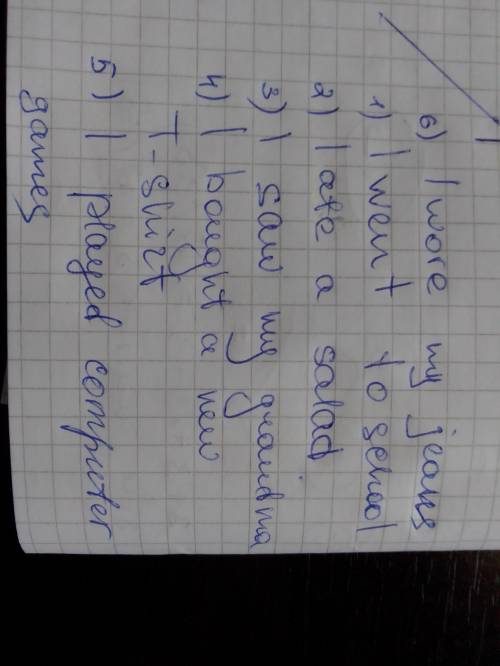 6) I wore my jeans
1) I went to school
2) I ate a salad
3) I saw my grandma
4) I bought a new
T-shirt
5) I played computer
games